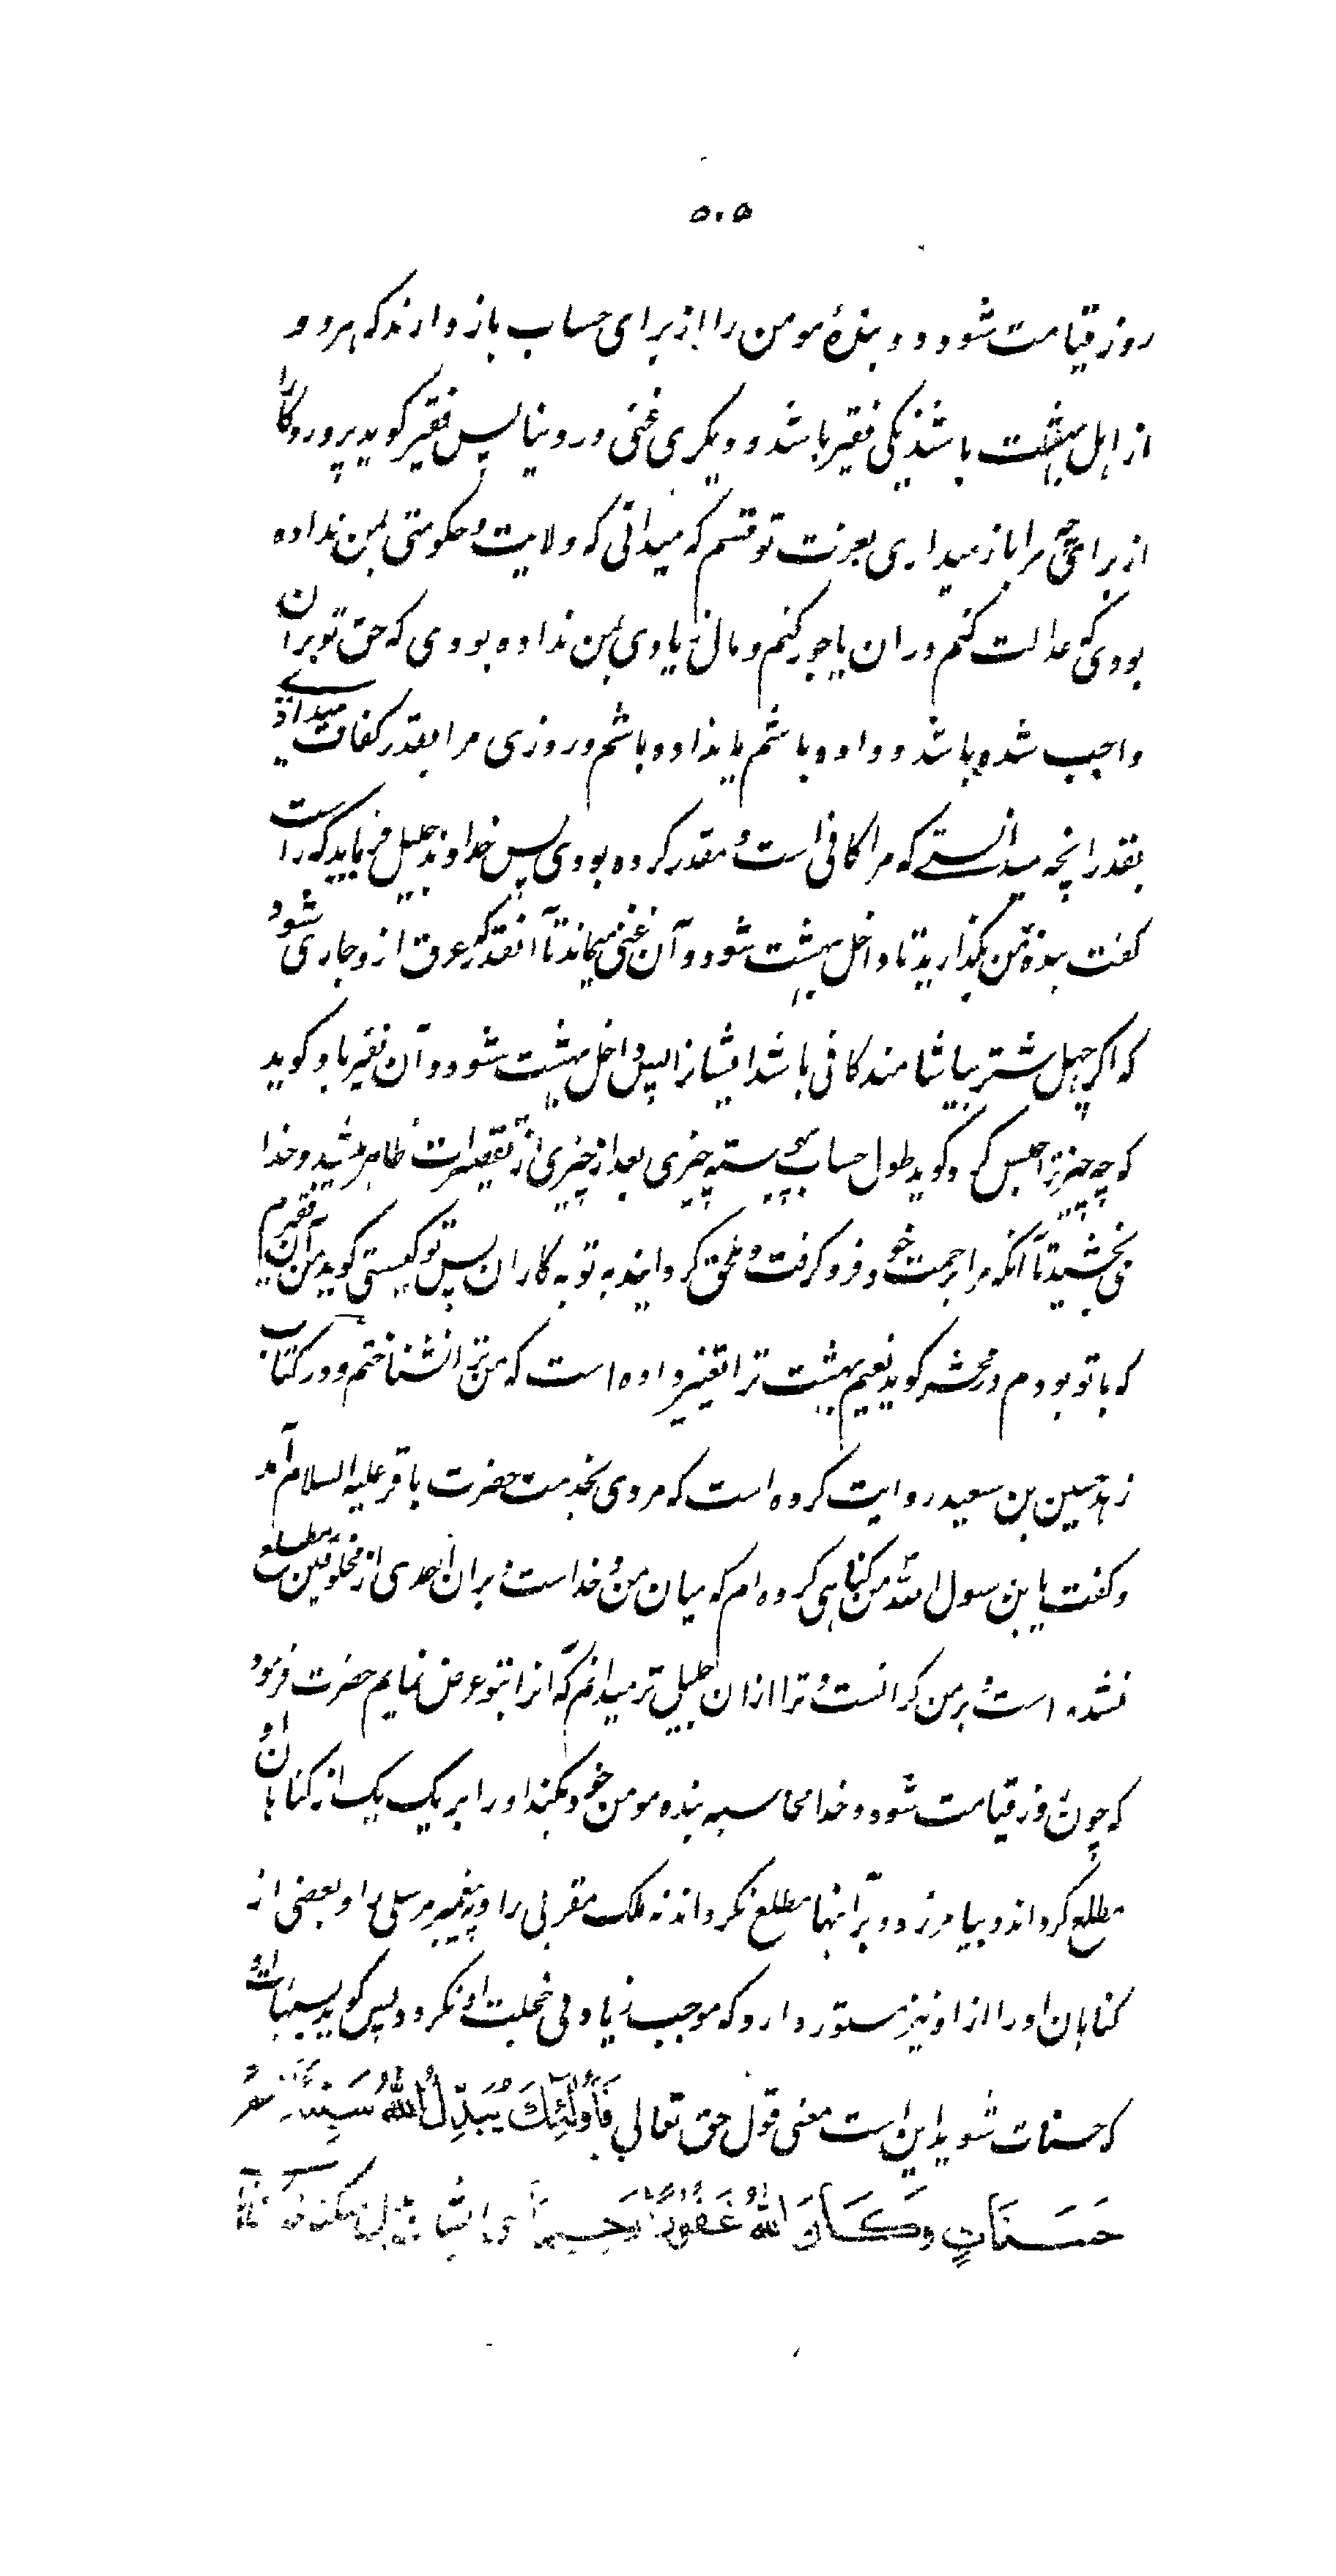 ۵۰۵
روز قیامت شود و دو بنده مومن را از برای حساب باز دارند که هر دو
از اهل بهشت باشند یکی فقیر باشد و دیگری غنی در دنیا پس فقیر گوید پروردگارا
از برای چه مرا باز میداری بعزت تو قسم که میدانی که ولایت و حکومتی بمن نداده
بودی که عدالت کنم در ان یا جور کنم و مال زیادی بمن نداده بودی که حق تو بران
واجب شده باشد و داده باشم یا نداده باشم و روزی مرا بقدر کفاف میدادی
بقدر انچه میدانستے که مرا کافی است و مقدر کرده بودی پس خداوند جلیل فرماید که راست
گفت بنده من بگذارید تا داخل بهشت شود و آن غنی میماند تا آنقدر عرق از و جاری شود
که اگر چهل شتر بیاشامند کافی باشد ایشانرا پس داخل بهشت شود و آن فقیر باو گوید
که چه چیز ترا حبس کرد گوید طول حساب پیوسته چیزی بعد از چیزی از تقصیرات ظاهر میشد و خدا
می بخشید تا آنکه مرا برحمت خود فرو گرفت و ملحق گردانید به توبه کاران پس تو کیستی گوید من آن فقیرم
که با تو بودم در محشر گوید نعیم بهشت ترا تغییر داده است که من ترا نشناختم و در کتاب
زهد حسین بن سعید روایت کرده است که مردی بخدمت حضرت باقر علیه السلام آمد
و گفت یا بن رسول الله من گناهی کرده ام که میان من و خداست و بران احدی از مخلوقین مطلع
نشده است و بر من گرانست و ترا ازان جلیل تر میدانم که آنرا بتو عرض نمایم حضرت فرمود
که چون روز قیامت شود و خدا محاسبه بنده مومن خود بکند او را بر یک یک از گناهان او
مطلع گرداند و بیامرزد و بر آنها مطلع نگرداند نه ملک مقربی را و نه پیغمبر مرسلی را و بعضی از
گناهان او را از او نیز مستور دارد که موجب زیادتی خجلت او نگردد پس گوید بسیئات او
که حسنات شوید این است معنی قول حق تعالی فَأُولَٰئِكَ يُبَدِّلُ اللَّهُ سَيِّئَاتِهِمْ
حَسَنَاتٍ وَكَانَ اللَّهُ غَفُورًا رَحِيمًا